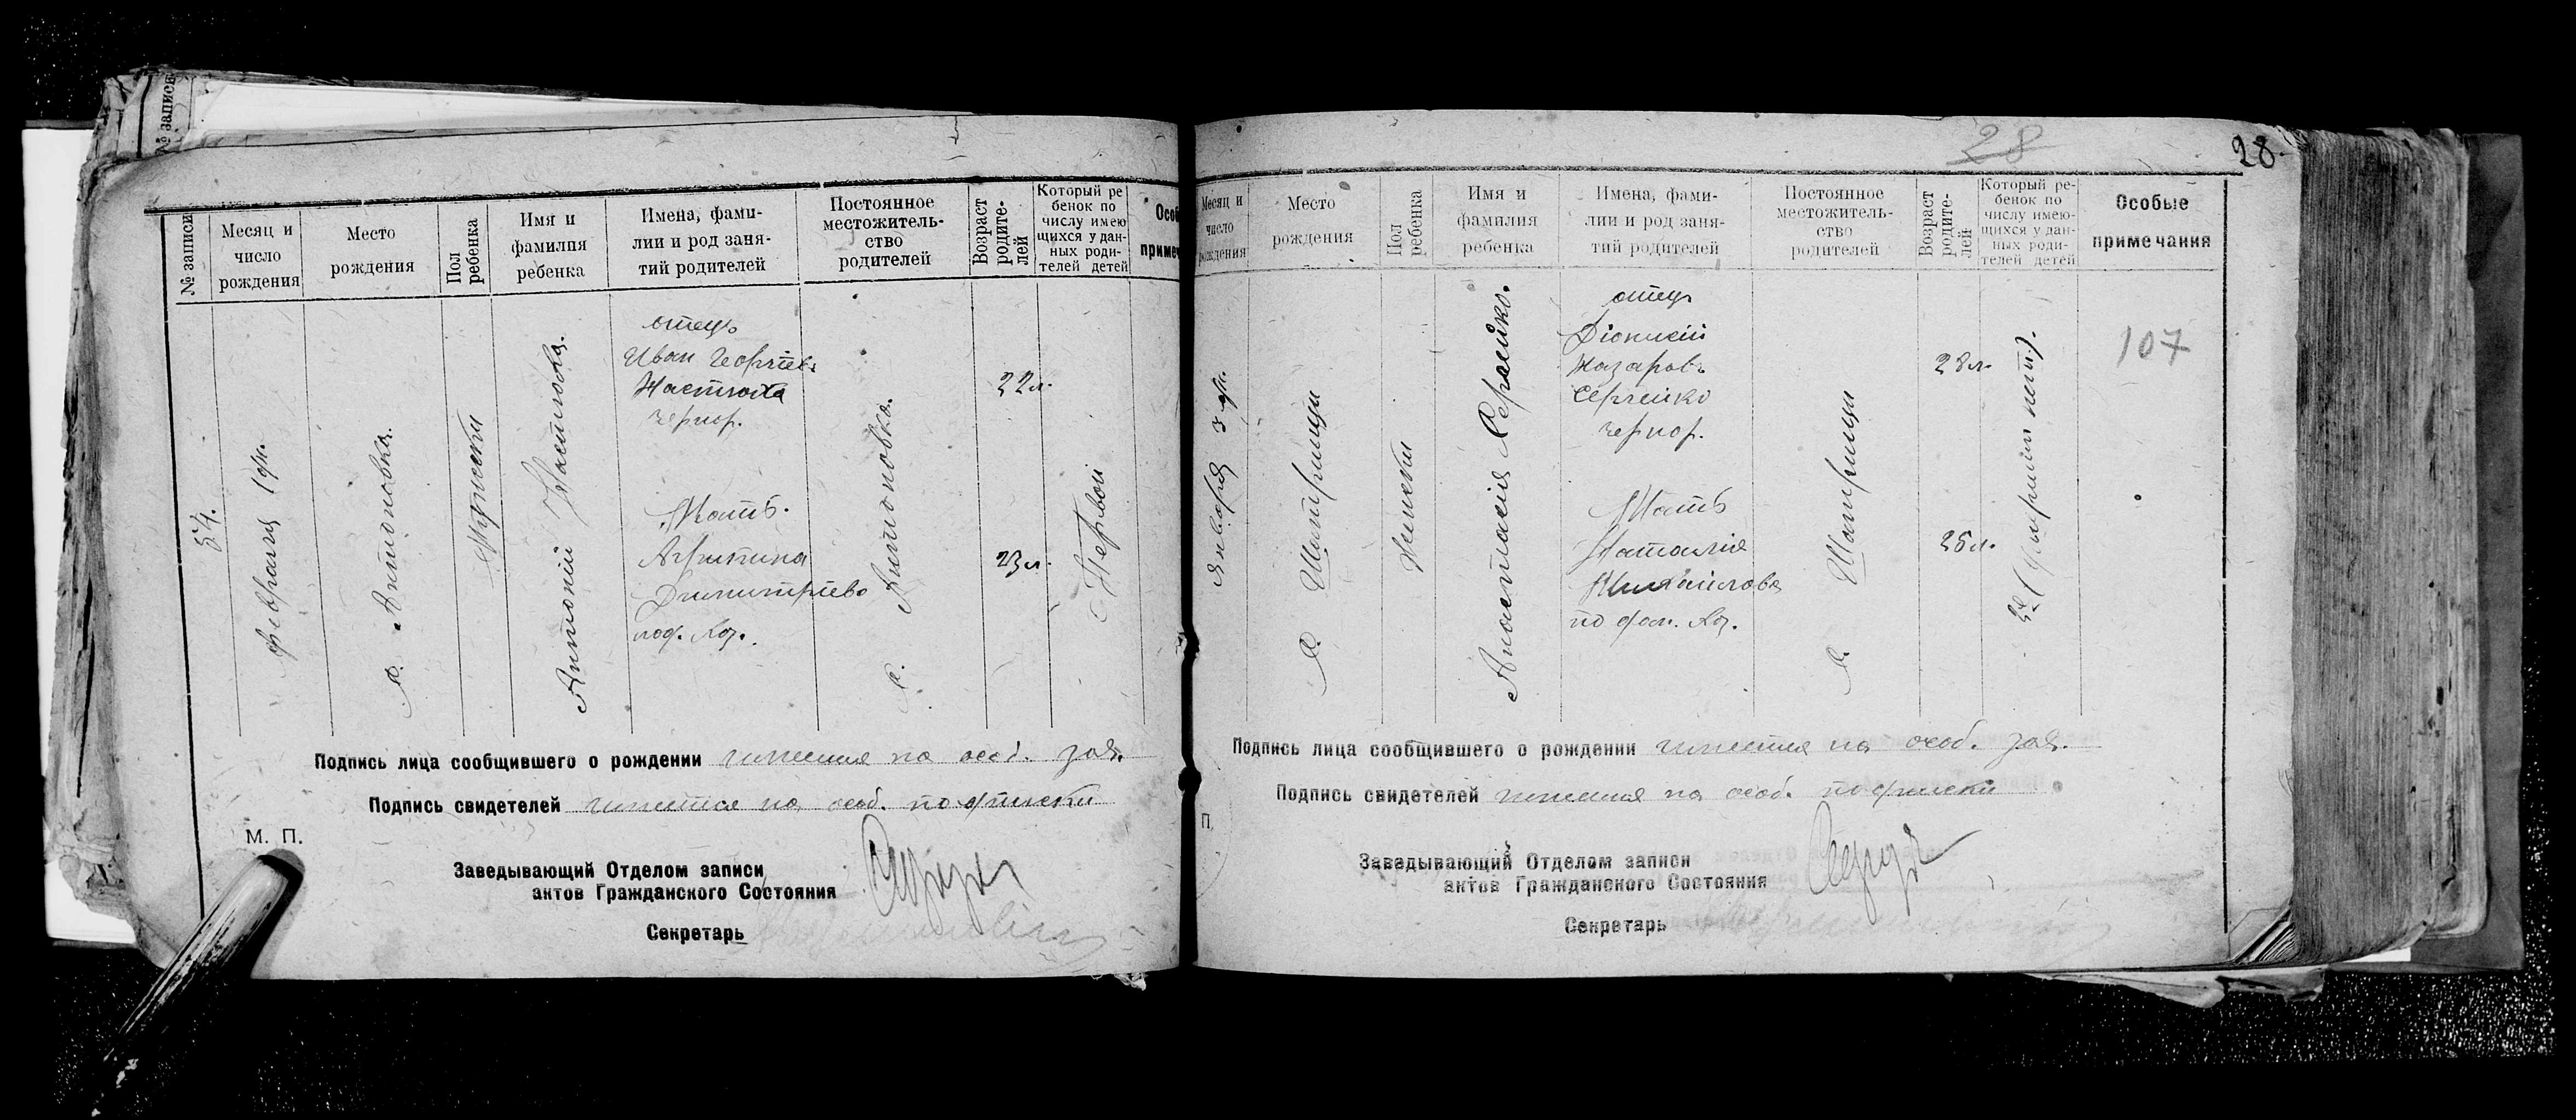 № записи
28
28.
№ записи
Месяц и
число
рождения
Место
рождения
Пол
ребенка
Имя и
фамилия
ребенка
Имена, фами-
лии и род заня-
тий родителей
Постоянное
местожитель-
ство
родителей
Возраст
родите-
лей
Который ре
бенок по
числу имею
щихся у дан-
ных роди-
телей детей
Особ
примеч
54.
февраля 1 дн.
с. Антоновка.
мужески
Антоній
отец
Иван Георгіев
зернор.
Мать.
Агрипина
Димитріево
под. Каз.
с. Антоновка.
22 л.
23 л.
Первой
Подпись лица сообщившего о рождении имеется на особ. зая.
Подпись свидетелей имеется на особ. подписки
М. П.
Заведывающий Отделом записи
актов Гражданского Состояния
Секретарь
Месяц и
число
рождения
Место
рождения
Пол
ребенка
Имя и
фамилия
ребенка
Имена, фами-
лии и род заня-
тий родителей
Постоянное
местожитель-
ство
родителей
Возраст
родите-
лей
Который ре-
бенок по
числу имею-
щихся у дан-
ных роди-
телей детей
Особые
примечания
января 3 дн.
с. Шатрищи
Женски
Анастасія Сергейко.
отец
Діонисій
Назаровъ
Сергейко
зернор.
Мать
Наталія
Михайлова
по фам. Каз.
с. Шатрищи
28 л.
25 л.
107
Подпись лица сообщившего о рождении имеется на особ. зая.
Подпись свидетелей имеется на особ. подписки
П.
Заведывающий Отделом записи
актов Гражданского Состояния
Секретарь